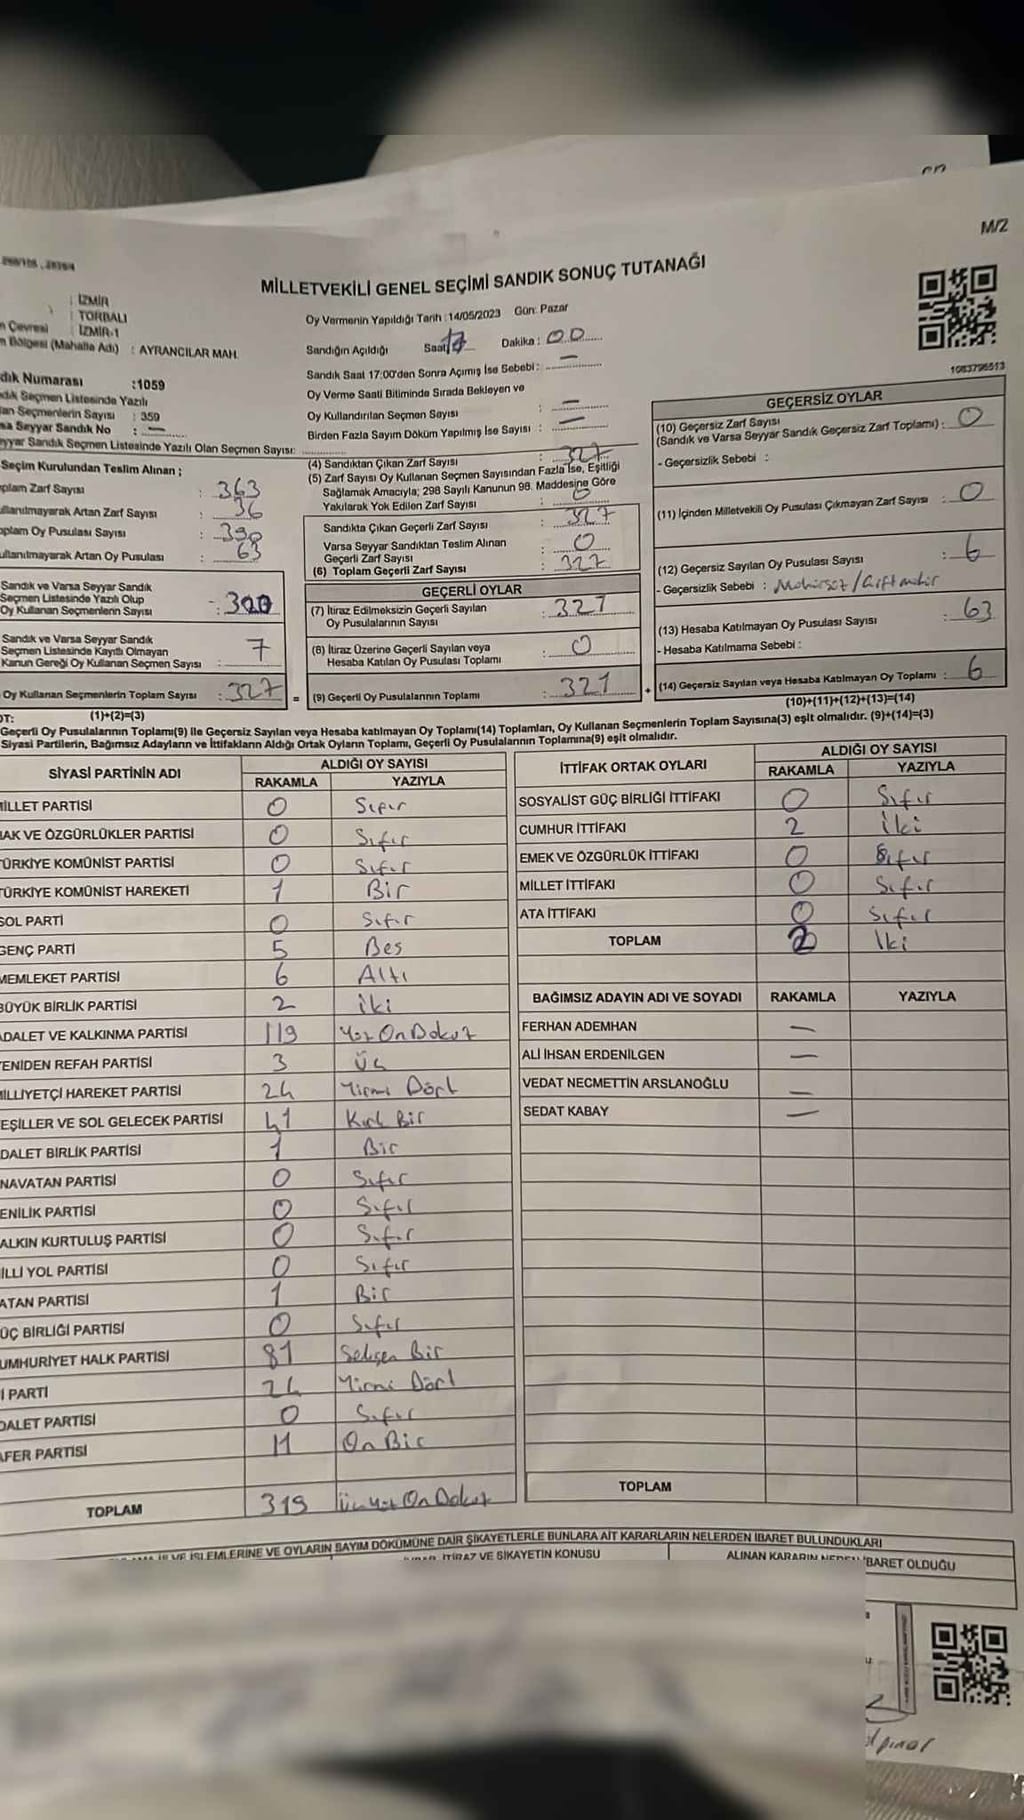 M/Z
MİLLETVEKİLİ GENEL SEÇİMİ SANDIK SONUÇ TUTANAĞI
: İZMİR
: TORBALI
n Çevresi : İZMİR-1
m Bölgesi (Mahalle Adı) : AYRANCILAR MAH.
Oy Vermenin Yapıldığı Tarih :14/05/2023 Gün: Pazar
Sandığın Açıldığı Saat 17 Dakika : 00
Sandık Saat 17:00'den Sonra Açımış İse Sebebi: —
Oy Verme Saati Bitiminde Sırada Bekleyen ve
Oy Kullandırılan Seçmen Sayısı : —
Birden Fazla Sayım Döküm Yapılmış İse Sayısı : —
1083796513
dık Numarası :1059
dık Seçmen Listesinde Yazılı
lan Seçmenlerin Sayısı : 359
sa Seyyar Sandık No : —
eyyar Sandık Seçmen Listesinde Yazılı Olan Seçmen Sayısı:
Seçim Kurulundan Teslim Alınan ;
plam Zarf Sayısı : 363
ullanılmayarak Artan Zarf Sayısı : 36
oplam Oy Pusulası Sayısı : 390
ullanılmayarak Artan Oy Pusulası : 63
Sandık ve Varsa Seyyar Sandık
Seçmen Listesinde Yazılı Olup
Oy Kullanan Seçmenlerin Sayısı : 320
Sandık ve Varsa Seyyar Sandık
Seçmen Listesinde Kayıtlı Olmayan
Kanun Gereği Oy Kullanan Seçmen Sayısı : 7
Oy Kullanan Seçmenlerin Toplam Sayısı : 327 =
(4) Sandıktan Çıkan Zarf Sayısı : 327
(5) Zarf Sayısı Oy Kullanan Seçmen Sayısından Fazla İse, Eşitliği
Sağlamak Amacıyla; 298 Sayılı Kanunun 98. Maddesine Göre
Yakılarak Yok Edilen Zarf Sayısı : 0
Sandıkta Çıkan Geçerli Zarf Sayısı : 327
Varsa Seyyar Sandıktan Teslim Alınan
Geçerli Zarf Sayısı : 0
(6) Toplam Geçerli Zarf Sayısı : 327
GEÇERLİ OYLAR
(7) İtiraz Edilmeksizin Geçerli Sayılan
Oy Pusulalarının Sayısı : 321
(8) İtiraz Üzerine Geçerli Sayılan veya
Hesaba Katılan Oy Pusulası Toplamı : 0
(9) Geçerli Oy Pusulalarının Toplamı : 321 +
GEÇERSİZ OYLAR
(10) Geçersiz Zarf Sayısı
(Sandık ve Varsa Seyyar Sandık Geçersiz Zarf Toplamı) : 0
- Geçersizlik Sebebi :
(11) İçinden Milletvekili Oy Pusulası Çıkmayan Zarf Sayısı : 0
(12) Geçersiz Sayılan Oy Pusulası Sayısı : 6
- Geçersizlik Sebebi : Mühürsüz/Çift mühür
(13) Hesaba Katılmayan Oy Pusulası Sayısı : 63
- Hesaba Katılmama Sebebi :
(14) Geçersiz Sayılan veya Hesaba Katılmayan Oy Toplamı : 6
OT: (1)+(2)=(3)
(10)+(11)+(12)+(13)=(14)
Geçerli Oy Pusulalarının Toplamı(9) ile Geçersiz Sayılan veya Hesaba katılmayan Oy Toplamı(14) Toplamları, Oy Kullanan Seçmenlerin Toplam Sayısına(3) eşit olmalıdır. (9)+(14)=(3)
Siyasi Partilerin, Bağımsız Adayların ve İttifakların Aldığı Ortak Oyların Toplamı, Geçerli Oy Pusulalarının Toplamına(9) eşit olmalıdır.
SİYASİ PARTİNİN ADI
ALDIĞI OY SAYISI
RAKAMLA YAZIYLA
MİLLET PARTİSİ 0 Sıfır
HAK VE ÖZGÜRLÜKLER PARTİSİ 0 Sıfır
TÜRKİYE KOMÜNİST PARTİSİ 0 Sıfır
TÜRKİYE KOMÜNİST HAREKETİ 1 Bir
SOL PARTİ 0 Sıfır
GENÇ PARTİ 5 Beş
MEMLEKET PARTİSİ 6 Altı
BÜYÜK BİRLİK PARTİSİ 2 iki
ADALET VE KALKINMA PARTİSİ 119 Yüz On Dokuz
YENİDEN REFAH PARTİSİ 3 Üç
MİLLİYETÇİ HAREKET PARTİSİ 24 Yirmi Dört
EŞİLLER VE SOL GELECEK PARTİSİ 41 Kırk Bir
DALET BİRLİK PARTİSİ 1 Bir
NAVATAN PARTİSİ 0 Sıfır
ENİLİK PARTİSİ 0 Sıfır
ALKIN KURTULUŞ PARTİSİ 0 Sıfır
İLLİ YOL PARTİSİ 0 Sıfır
ATAN PARTİSİ 1 Bir
ÜÇ BİRLİĞİ PARTİSİ 0 Sıfır
UMHURİYET HALK PARTİSİ 81 Seksen Bir
İ PARTİ 24 Yirmi Dört
DALET PARTİSİ 0 Sıfır
AFER PARTİSİ 11 On Bir
TOPLAM 319 Üçyüz On Dokuz
İTTİFAK ORTAK OYLARI
ALDIĞI OY SAYISI
RAKAMLA YAZIYLA
SOSYALİST GÜÇ BİRLİĞİ İTTİFAKI 0 Sıfır
CUMHUR İTTİFAKI 2 İki
EMEK VE ÖZGÜRLÜK İTTİFAKI 0 Sıfır
MİLLET İTTİFAKI 0 Sıfır
ATA İTTİFAKI 0 Sıfır
TOPLAM 2 İki
BAĞIMSIZ ADAYIN ADI VE SOYADI RAKAMLA YAZIYLA
FERHAN ADEMHAN —
ALİ İHSAN ERDENİLGEN —
VEDAT NECMETTİN ARSLANOĞLU —
SEDAT KABAY —
TOPLAM
VE İŞLEMLERİNE VE OYLARIN SAYIM DÖKÜMÜNE DAİR ŞİKAYETLERLE BUNLARA AİT KARARLARIN NELERDEN İBARET BULUNDUKLARI
İTİRAZ VE ŞİKAYETİN KONUSU
ALINAN KARARIN NEDEN İBARET OLDUĞU